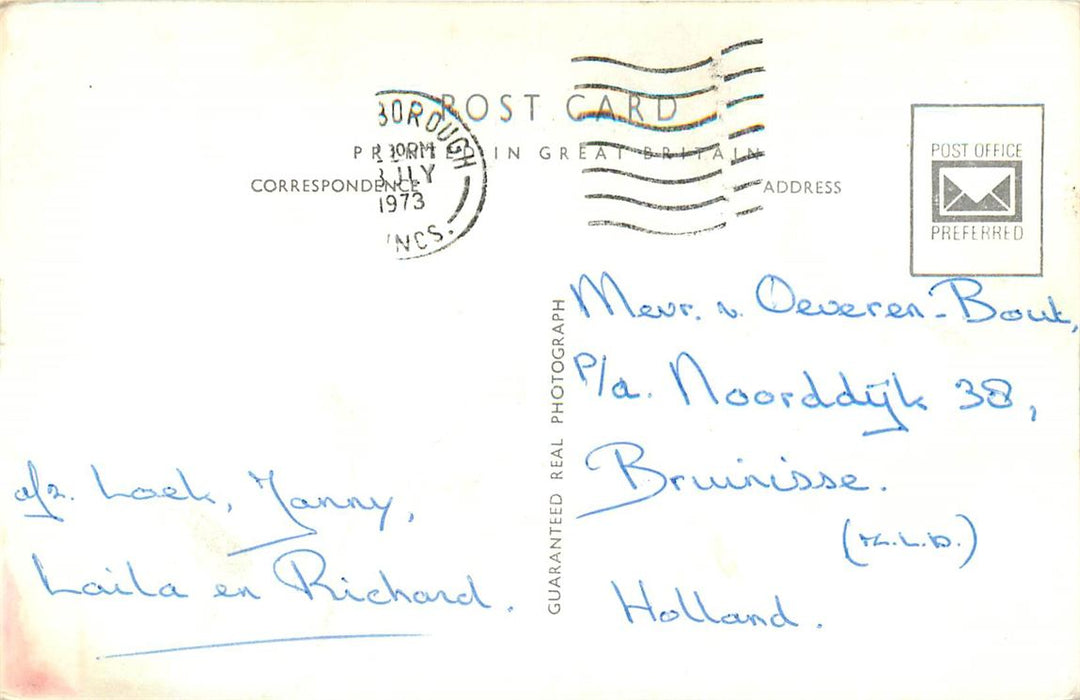 POST CARD
PRINTED IN GREAT BRITAIN
CORRESPONDENCE
ADDRESS
BOROUGH
30PM
JLY
1973
NCS.
POST OFFICE
PREFERRED
GUARANTEED REAL PHOTOGRAPH
Mevr. v. Oeveren-Bout,
P/a. Noorddijk 38,
Bruinisse.
(ZLD.)
Holland.
afz. Loek, Janny,
Laila en Richard.